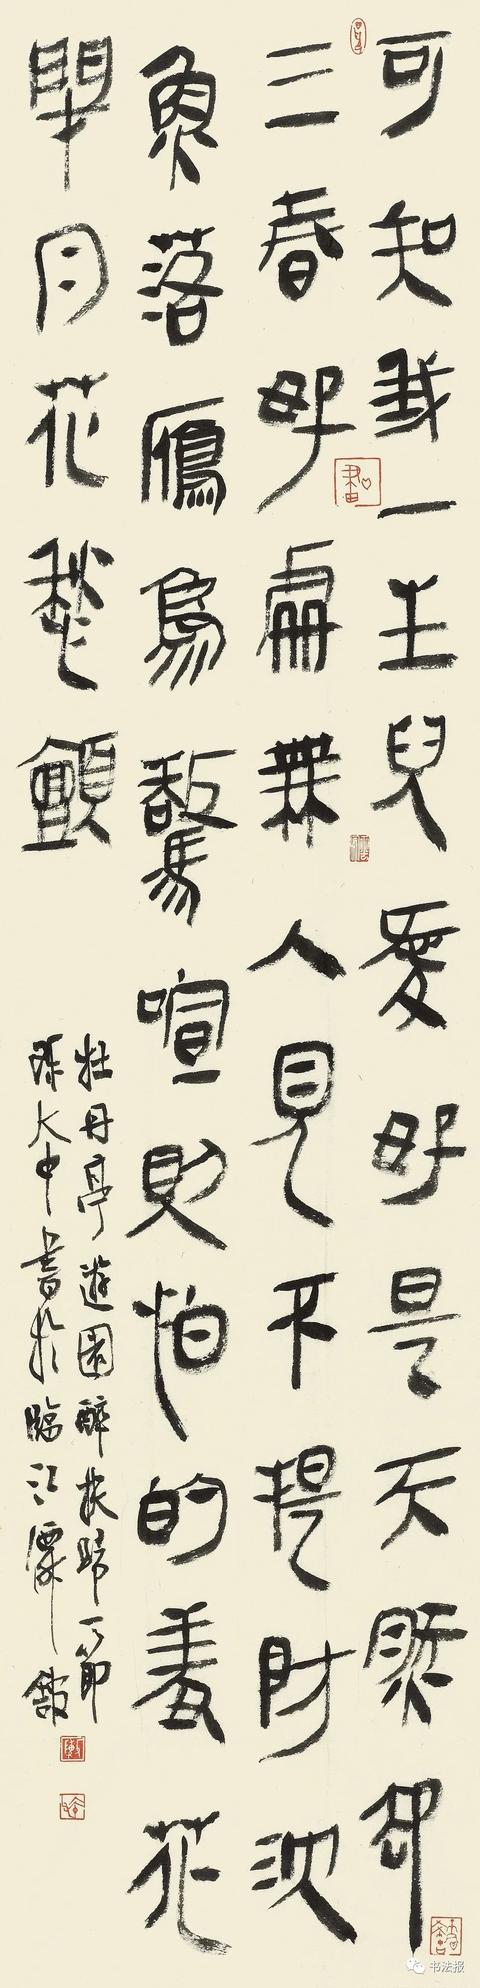 可知我一生兒愛好是天然
三春好處無人見不提防沉
魚落雁鳥驚喧則怕的羞花
閉月花愁顫
牡丹亭遊園醉扶歸一節
陳大中書於臨江館
书法报